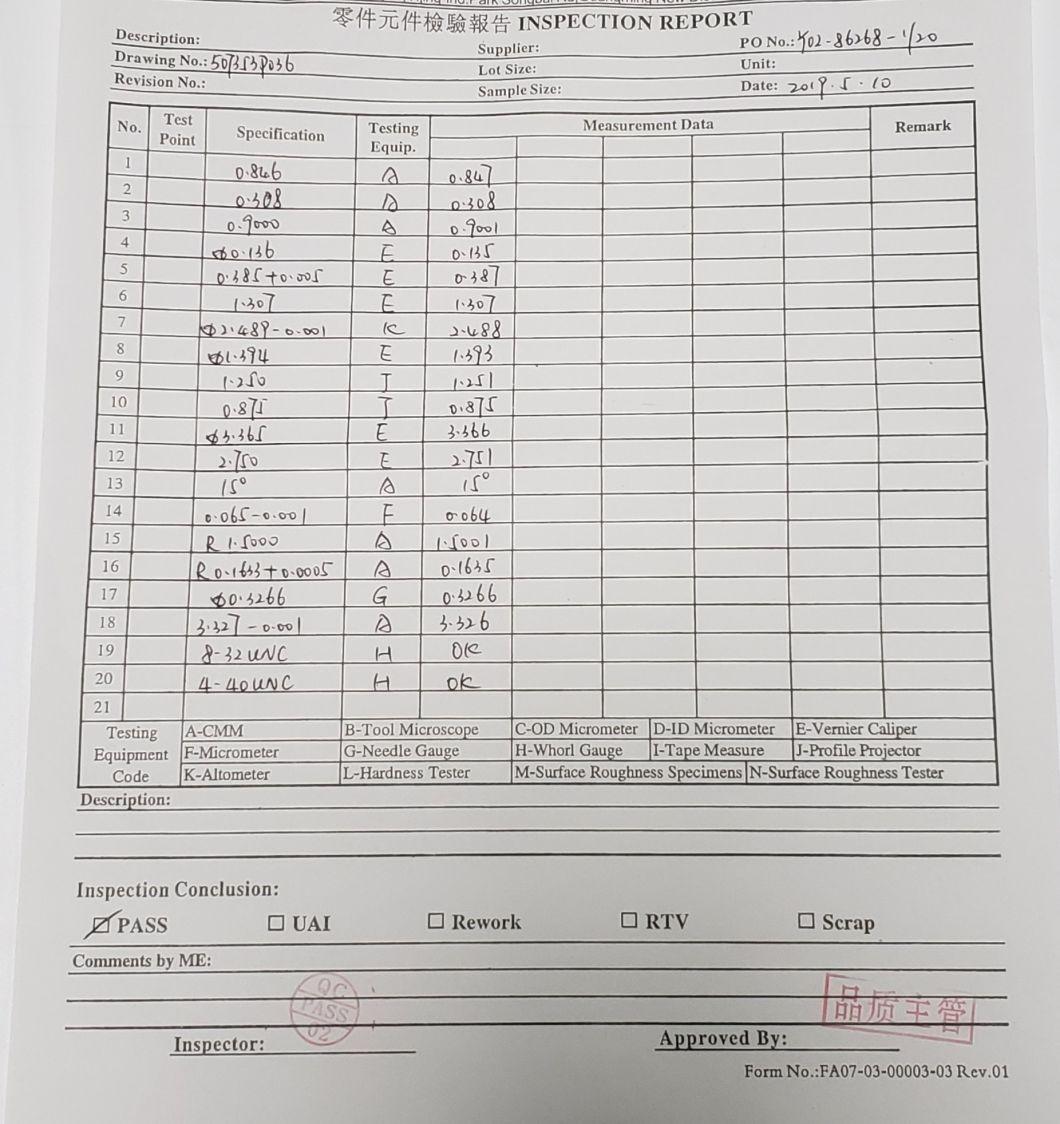 零件元件檢驗報告 INSPECTION REPORT
Description: Supplier: PO No.: Y02-86268-1/20
Drawing No.: Lot Size: Unit:
Revision No.: Sample Size: Date: 2019.5.10
No. Test Point Specification Testing Equip. Measurement Data Remark
1 0.846 A 0.847
2 0.308 A 0.308
3 0.9000 A 0.9001
4 ϕ0.136 E 0.135
5 0.385+0.005 E 0.387
6 1.307 E 1.307
7 ϕ2.489-0.001 K 2.488
8 ϕ1.394 E 1.393
9 1.250 J 1.251
10 0.875 J 0.875
11 ϕ3.365 E 3.366
12 2.750 E 2.751
13 15° A 15°
14 0.065-0.001 F 0.064
15 R 1.5000 A 1.5001
16 R0.1633+0.0005 A 0.1635
17 ϕ0.3266 G 0.3266
18 3.327-0.001 A 3.326
19 8-32UNC H OK
20 4-40UNC H OK
21
Testing Equipment Code
A-CMM B-Tool Microscope C-OD Micrometer D-ID Micrometer E-Vernier Caliper
F-Micrometer G-Needle Gauge H-Whorl Gauge I-Tape Measure J-Profile Projector
K-Altometer L-Hardness Tester M-Surface Roughness Specimens N-Surface Roughness Tester
Description:
Inspection Conclusion:
☑ PASS ☐ UAI ☐ Rework ☐ RTV ☐ Scrap
Comments by ME:
QC
PASS
02
品质主管
Inspector: Approved By:
Form No.:FA07-03-00003-03 Rev.01